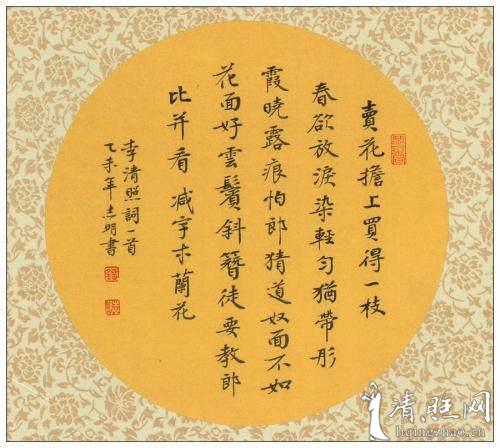 賣花擔上買得一枝
春欲放淚染輕匀猶帶彤
霞曉露痕怕郎猜道奴面不如
花面好雲鬢斜簪徒要教郎
比并看 减字木蘭花
李清照詞一首
乙未年志明書
清旺网